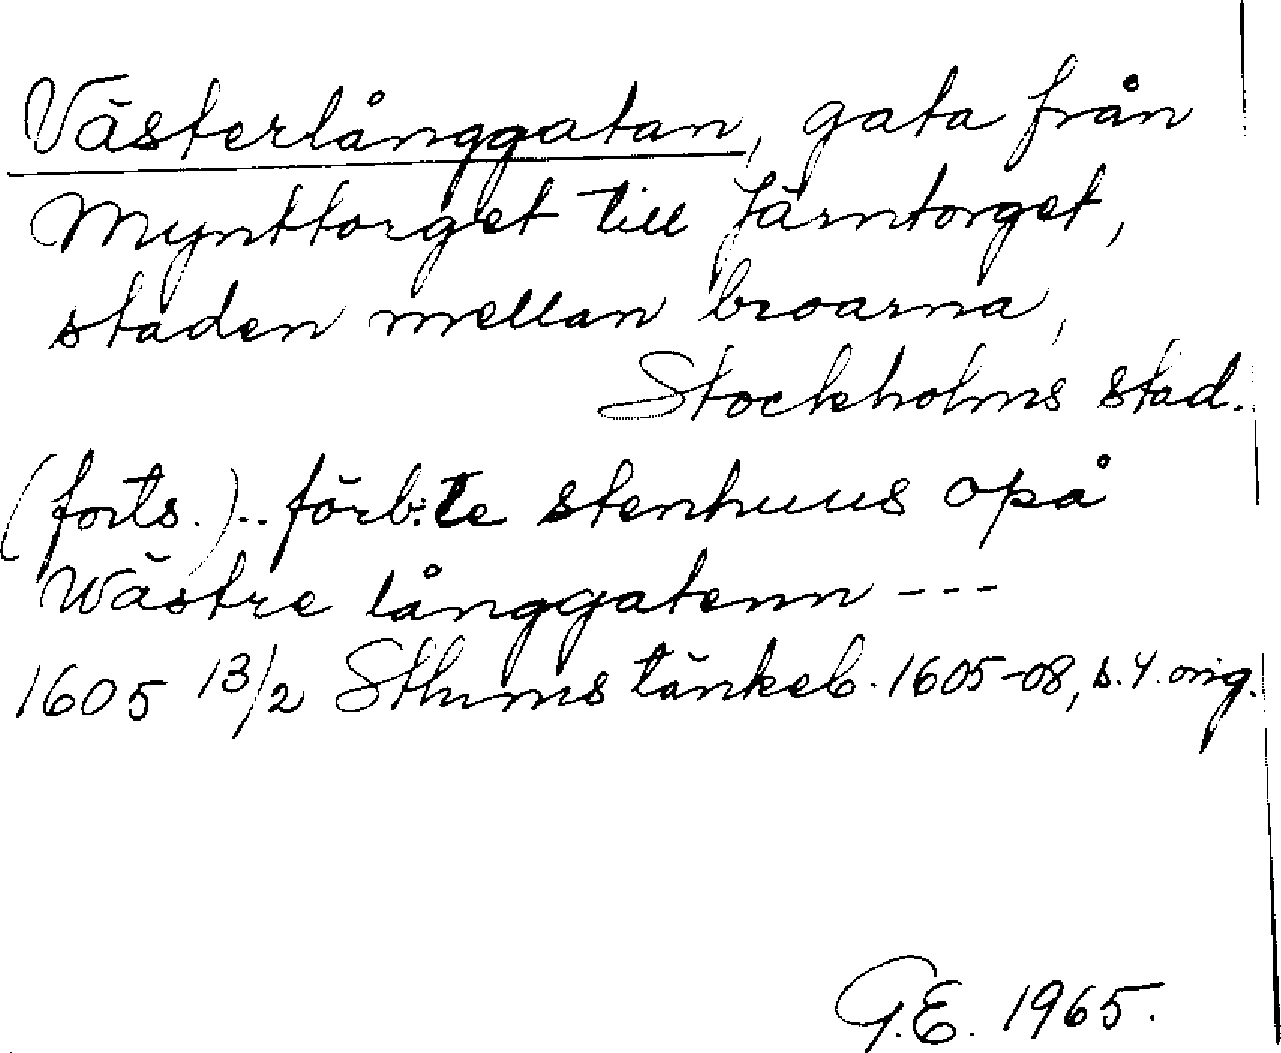 Västerlånggatan, gata från
Mynttorget till Järntorget,
staden mellan broarna,
Stockholms stad.
(forts.).. förb:te stenhuus opå
Wästre långgatenn ---
1605 13/2 Sthms tänkeb. 1605-08, s. 4. orig.
G.E. 1965.